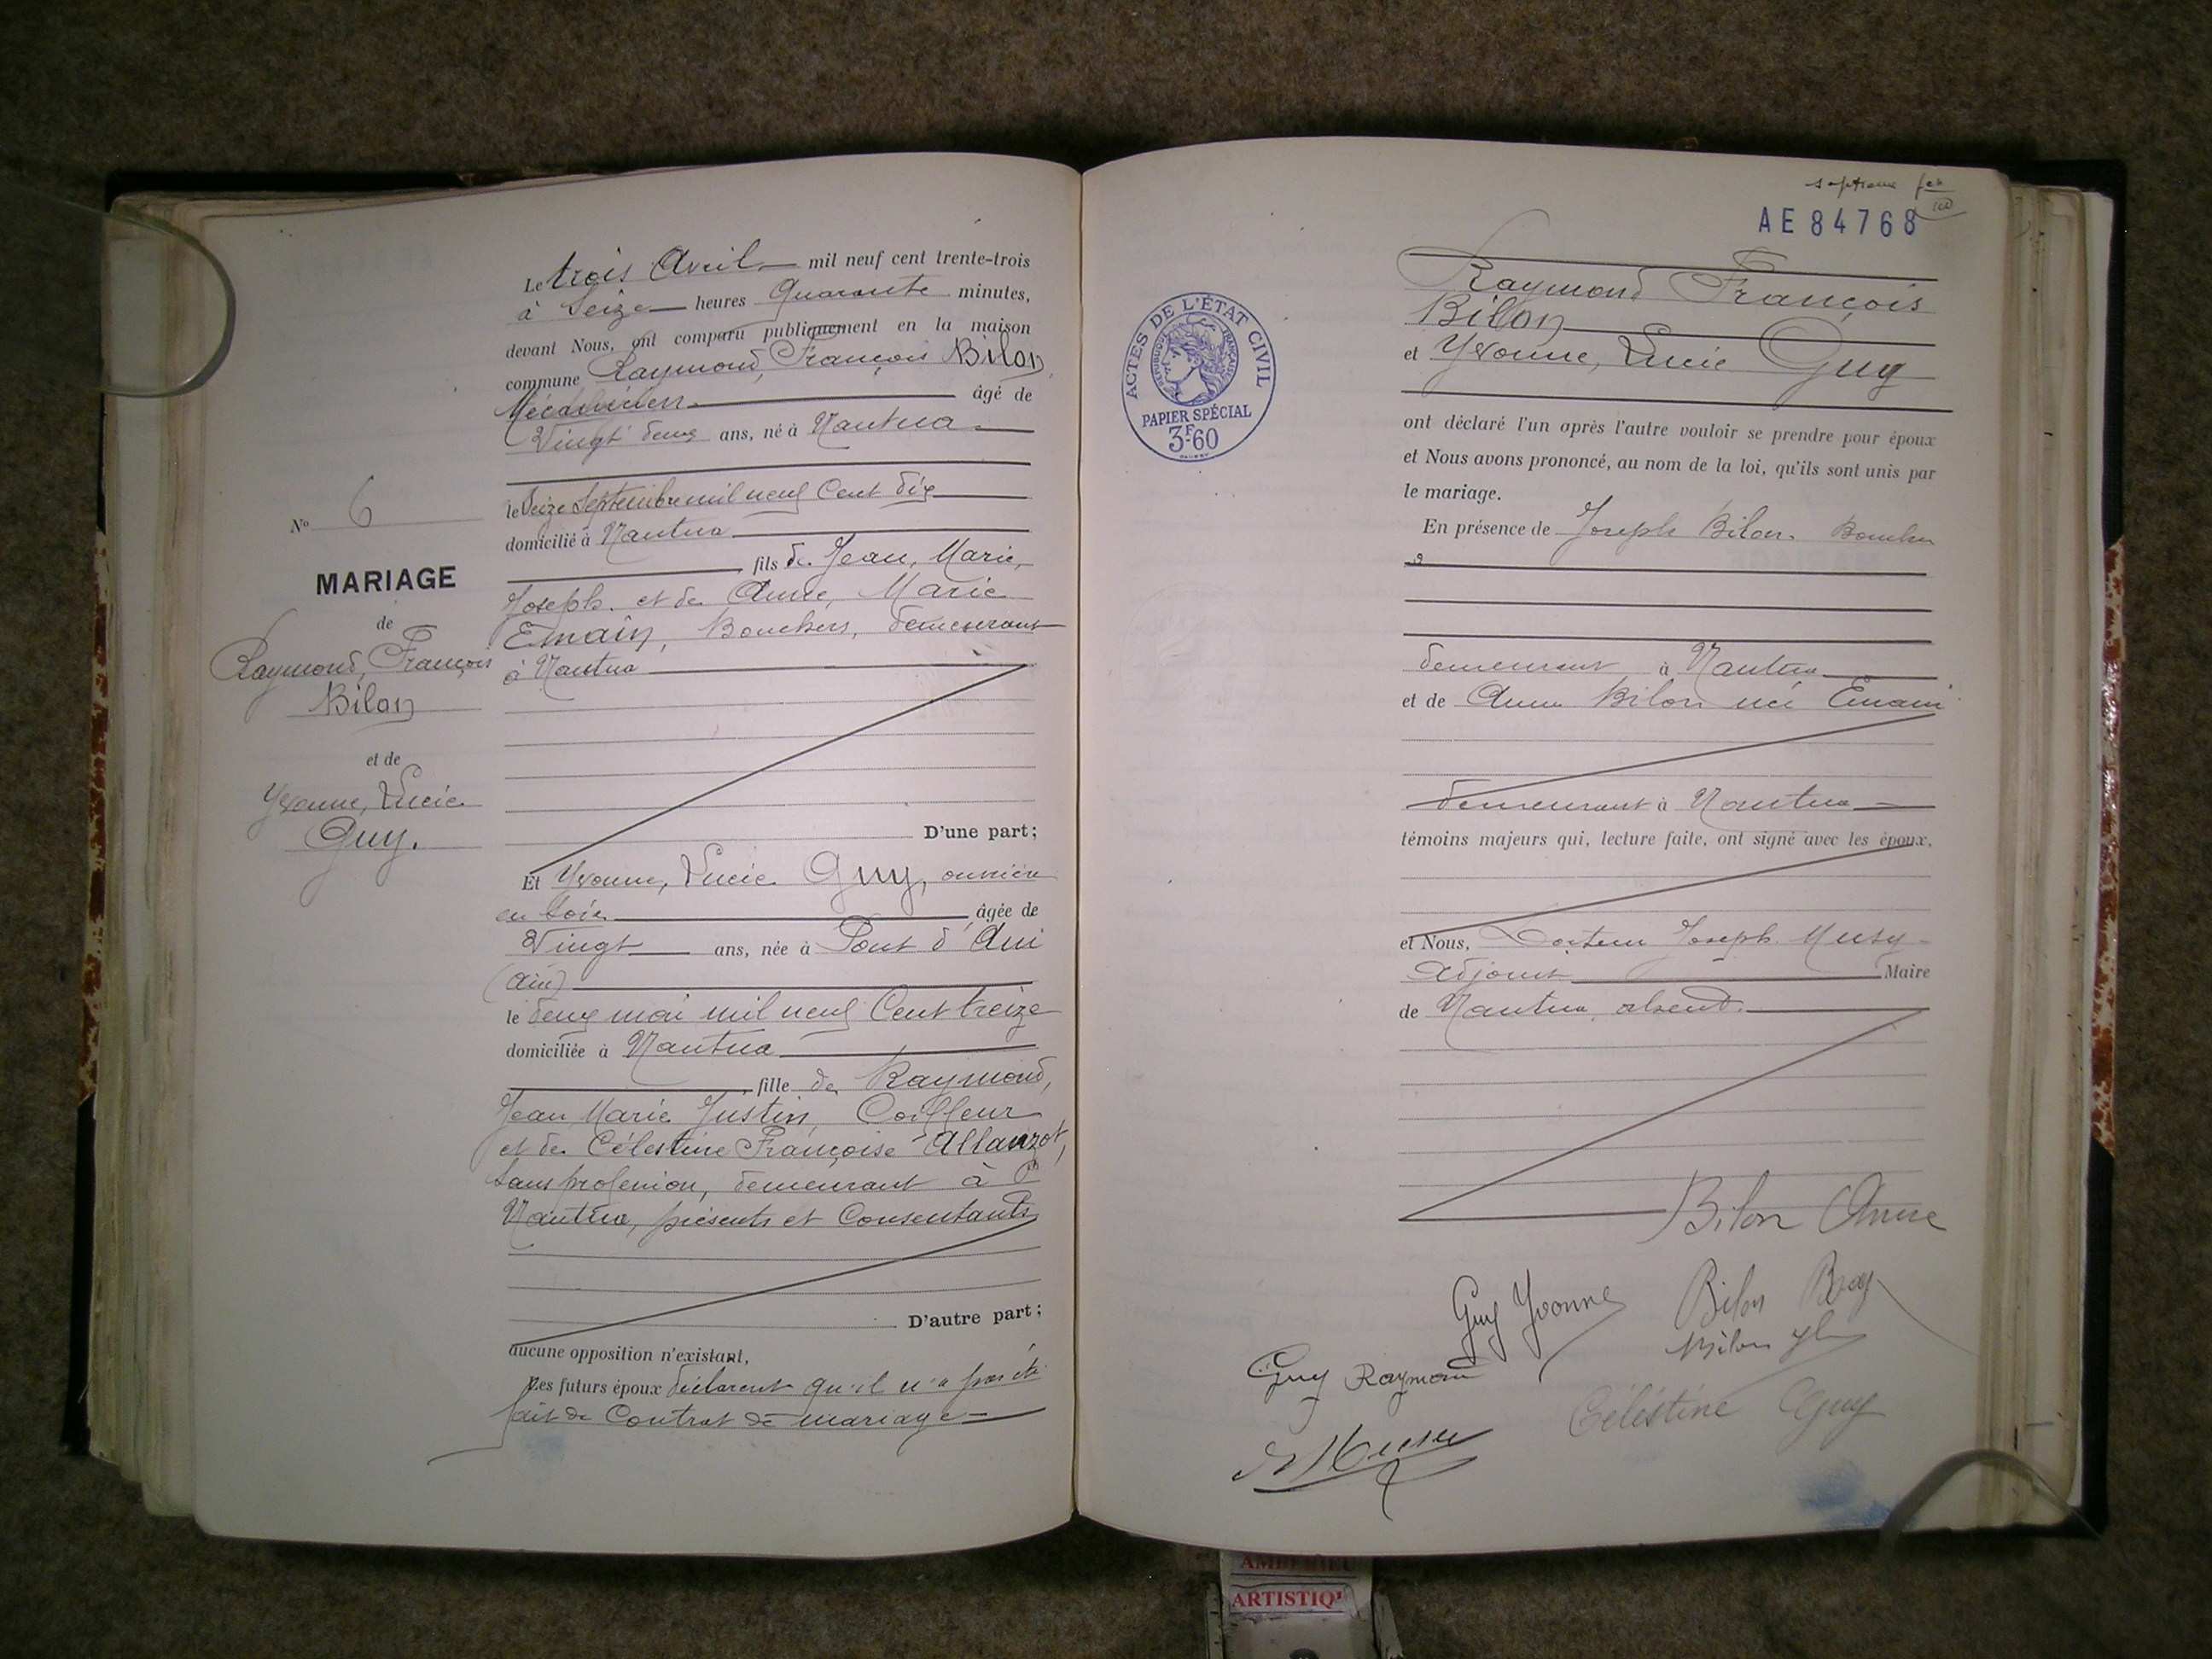 Le trois Avril mil neuf cent trente-trois
à Seize heures Quarante minutes,
devant Nous, ont comparu publiquement en la maison
commune Raymond, François Bilon
Mécanicien âgé de
Vingt deux ans, né à Nantua
le Seize Septembre mil neuf Cent dix
domicilié à Nantua
fils de Jean, Marie,
Joseph. et de Anne, Marie
Emain, Bouchers, demeurant
à Nantua
D'une part;
Et Yvonne, Lucie Guy, ouvrière
en soie âgée de
Vingt ans, née à Pont d'Ain
(Ain)
le deux mai mil neuf Cent treize
domiciliée à Nantua
fille de Raymond,
Jean Marie Justin, Coiffeur
et de Célestine Françoise Allanzot,
sans profession, demeurant à
Nantua, présents et Consentants
D'autre part;
aucune opposition n'existant,
Les futurs époux déclarent qu'il n'a pas été
fait de Contrat de mariage
N° 6
MARIAGE
de
Raymond, François
Bilon
et de
Yvonne, Lucie
Guy.
AE 84768
ACTES DE L'ÉTAT CIVIL
RÉPUBLIQUE FRANÇAISE
PAPIER SPÉCIAL
3F60
Raymond François
Bilon
et Yvonne, Lucie Guy
ont déclaré l'un après l'autre vouloir se prendre pour époux
et Nous avons prononcé, au nom de la loi, qu'ils sont unis par
le mariage.
En présence de Joseph Bilon. Boucher
demeurant à Nantua
et de Anne Bilon née Emain
demeurant à Nantua
témoins majeurs qui, lecture faite, ont signé avec les époux.
et Nous, Docteur Joseph Musy
adjoint Maire
de Nantua, absent.
Bilon Anne
Guy Yvonne
Bilon Ray
Bilon
Guy Raymond
Céléstine Guy
ARTISTIQ